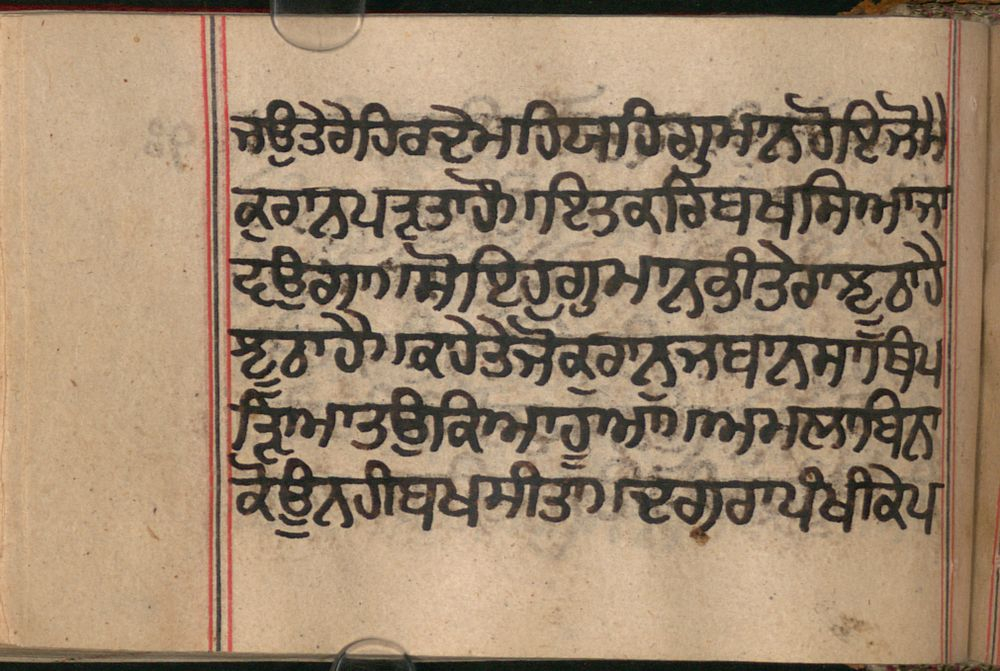 ਜਉਤੇਰੇਹਿਰਦੇਮਹਿਯਹਿਗੁਮਾਨਹੋਇਜੋਮੈ
ਕੁਰਾਨਪੜ੍ਹਤਾਹੌ॥ਇਤਕਰਿਬਖਸਿਆਜਾ
ਵਉਗਾ॥ਸੋਇਹੁਗੁਮਾਨਭੀਤੇਰਾਝੂਠਾਹੈ
ਝੂਠਾਹੈ॥ਕਹੇਤੇਜੋਕੁਰਾਨਜਬਾਨਸਾਥਿਪ
ੜਿ੍ਆਤਉਕਿਆਹੂਆ॥ਅਮਲਾਬਿਨ
ਕੋਉਨਹੀਬਖਸੀਤਾ॥ਦਗਰਾਪੰਖੀਕੇਪ